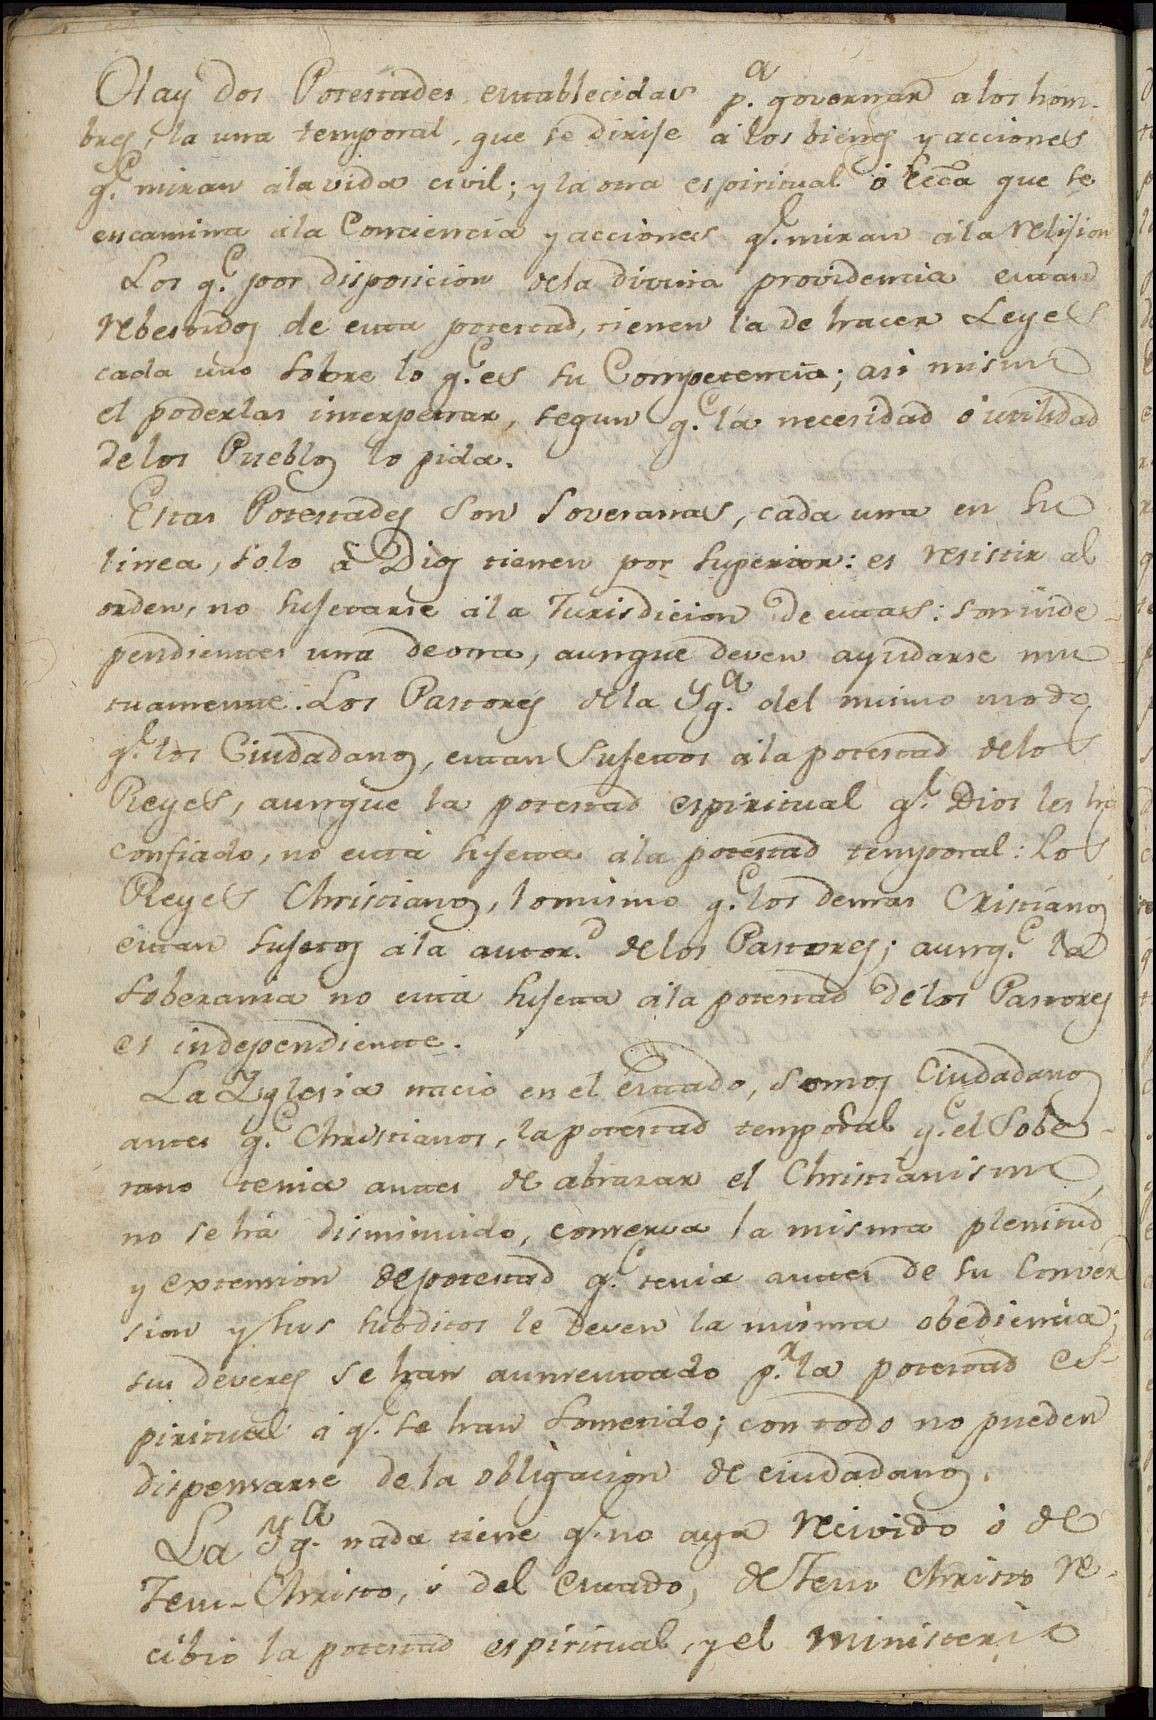 Hay dos Potestades establecidas p.a governar a los hom-
bres, la una temporal, que se dirije á los bienes y acciones
q.e miran á la vida civil; y la otra espiritual ó Ecca que se
encamina á la Conciencia y acciones q.e miran á la religion
Los q.e por disposicion de la divina providencia estan
rebestidos de esta potestad, tienen la de hacer Leyes
cada uno sobre lo q.e es su Competencia; asi mismo
el poderlas interpetrar, segun q.e la necesidad ó utilidad
de los Pueblos lo pida.
Estas Potestades son soveranas, cada una en su
linea, solo á Dios tienen por superior: es resistir al
orden, no sujetarse á la Jurisdicion de estas: son inde-
pendientes una de otra, aunque deven ayudarse mu
tuamente. Los Pastores de la Yg.a del mismo modo
q.e los Ciudadanos, estan sujetos á la potestad de los
Reyes, aunque la potestad espiritual q.e Dios les ha
confiado, no está sujeta á la potestad temporal: Los
Reyes Christianos, lo mismo q.e los demas Cristianos
estan sujetos á la autor.d de los Pastores; aunq.e la
soberania no está sujeta á la potestad de los Pastores
es independiente.
La Yglesia nació en el Estado, somos Ciudadanos
antes q.e Christianos, la potestad temporal q.e el Sobe-
rano tenia antes de abrazar el Christianismo,
no se há disminuido, conserva la misma plenitud
y extension de potestad q.e tenia antes de su conver
sion y sus subditos le deven la misma obediencia;
sus deveres se han aumentado p.r la potestad es-
piritual á q.e se han sometido; con todo no pueden
dispensarse de la obligacion de ciudadanos.
La Yg.a nada tiene q.e no aya recivido ó de
Jesu-Christo, ó del Estado, de Jesu Christo re-
cibió la potestad espiritual, y el ministerio